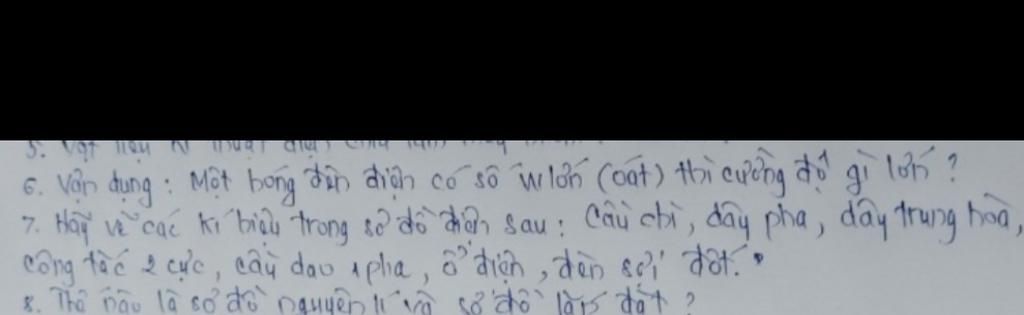 5. Vật liệu kĩ thuật điện chia làm mấy
6. Vận dụng : Một bóng đèn điện có số W lớn (oát) thì cường độ gì lớn ?
7. Hãy vẽ các kí hiệu trong sơ đồ điện sau : Cầu chì, dây pha, dây trung hoà,
công tắc 2 cực, cầu dao 1 pha, ổ điện, đèn sợi đốt.
8. Thế nào là sơ đồ nguyên lí và sơ đồ lắp đặt ?